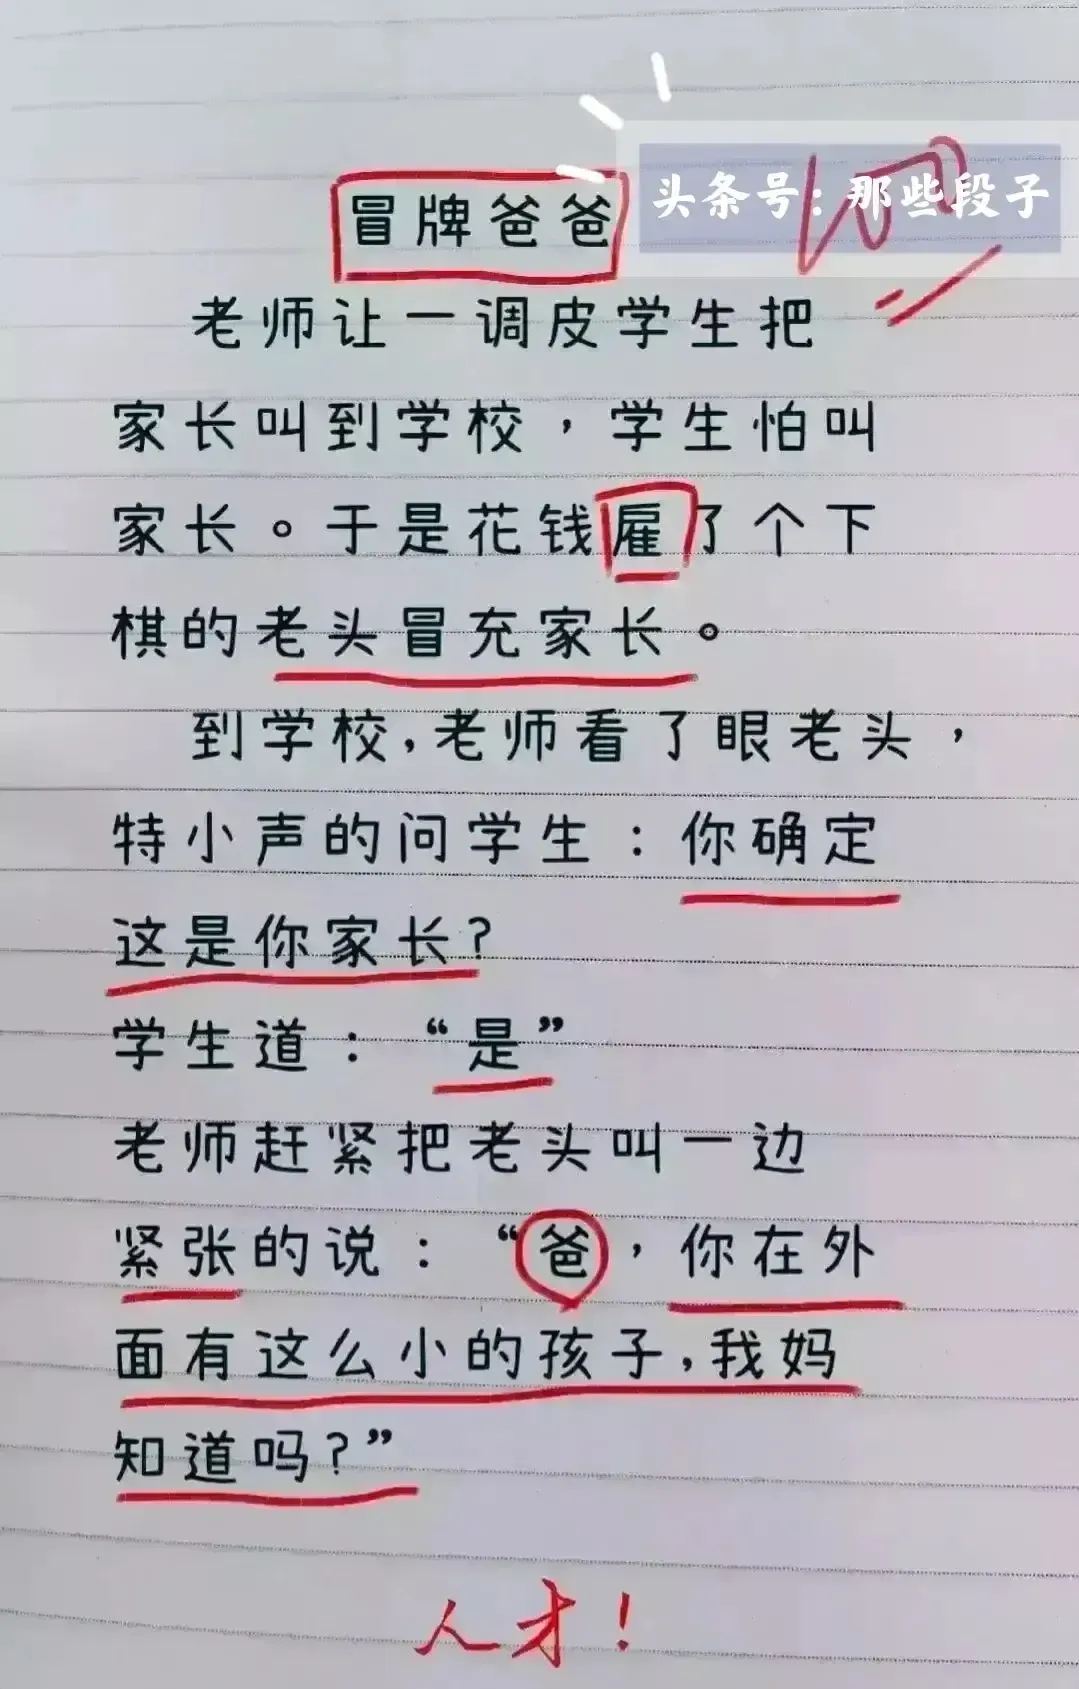 冒牌爸爸
头条号：那些段子
100
老师让一调皮学生把
家长叫到学校，学生怕叫
家长。于是花钱雇了个下
棋的老头冒充家长。
到学校,老师看了眼老头，
特小声的问学生：你确定
这是你家长?
学生道：“是”
老师赶紧把老头叫一边
紧张的说：“爸，你在外
面有这么小的孩子,我妈
知道吗?”
人才！